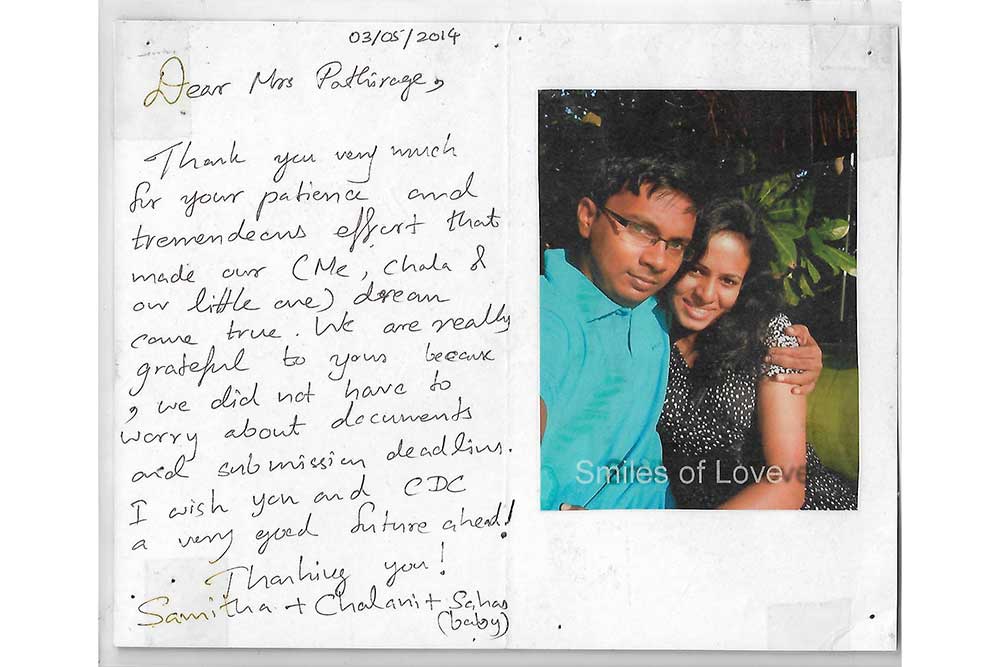 03/05/2014
Dear Mrs Pathirage,
Thank you very much
for your patience and
tremendeous effort that
made our (Me, Chala &
our little one) dream
come true. We are really
grateful to yous because
, we did not have to
worry about documents
and submission deadlins.
I wish you and CDC
a very good future ahead!
Thanking you!
Samitha + Chalani + Sahas
(baby)
Smiles of Love